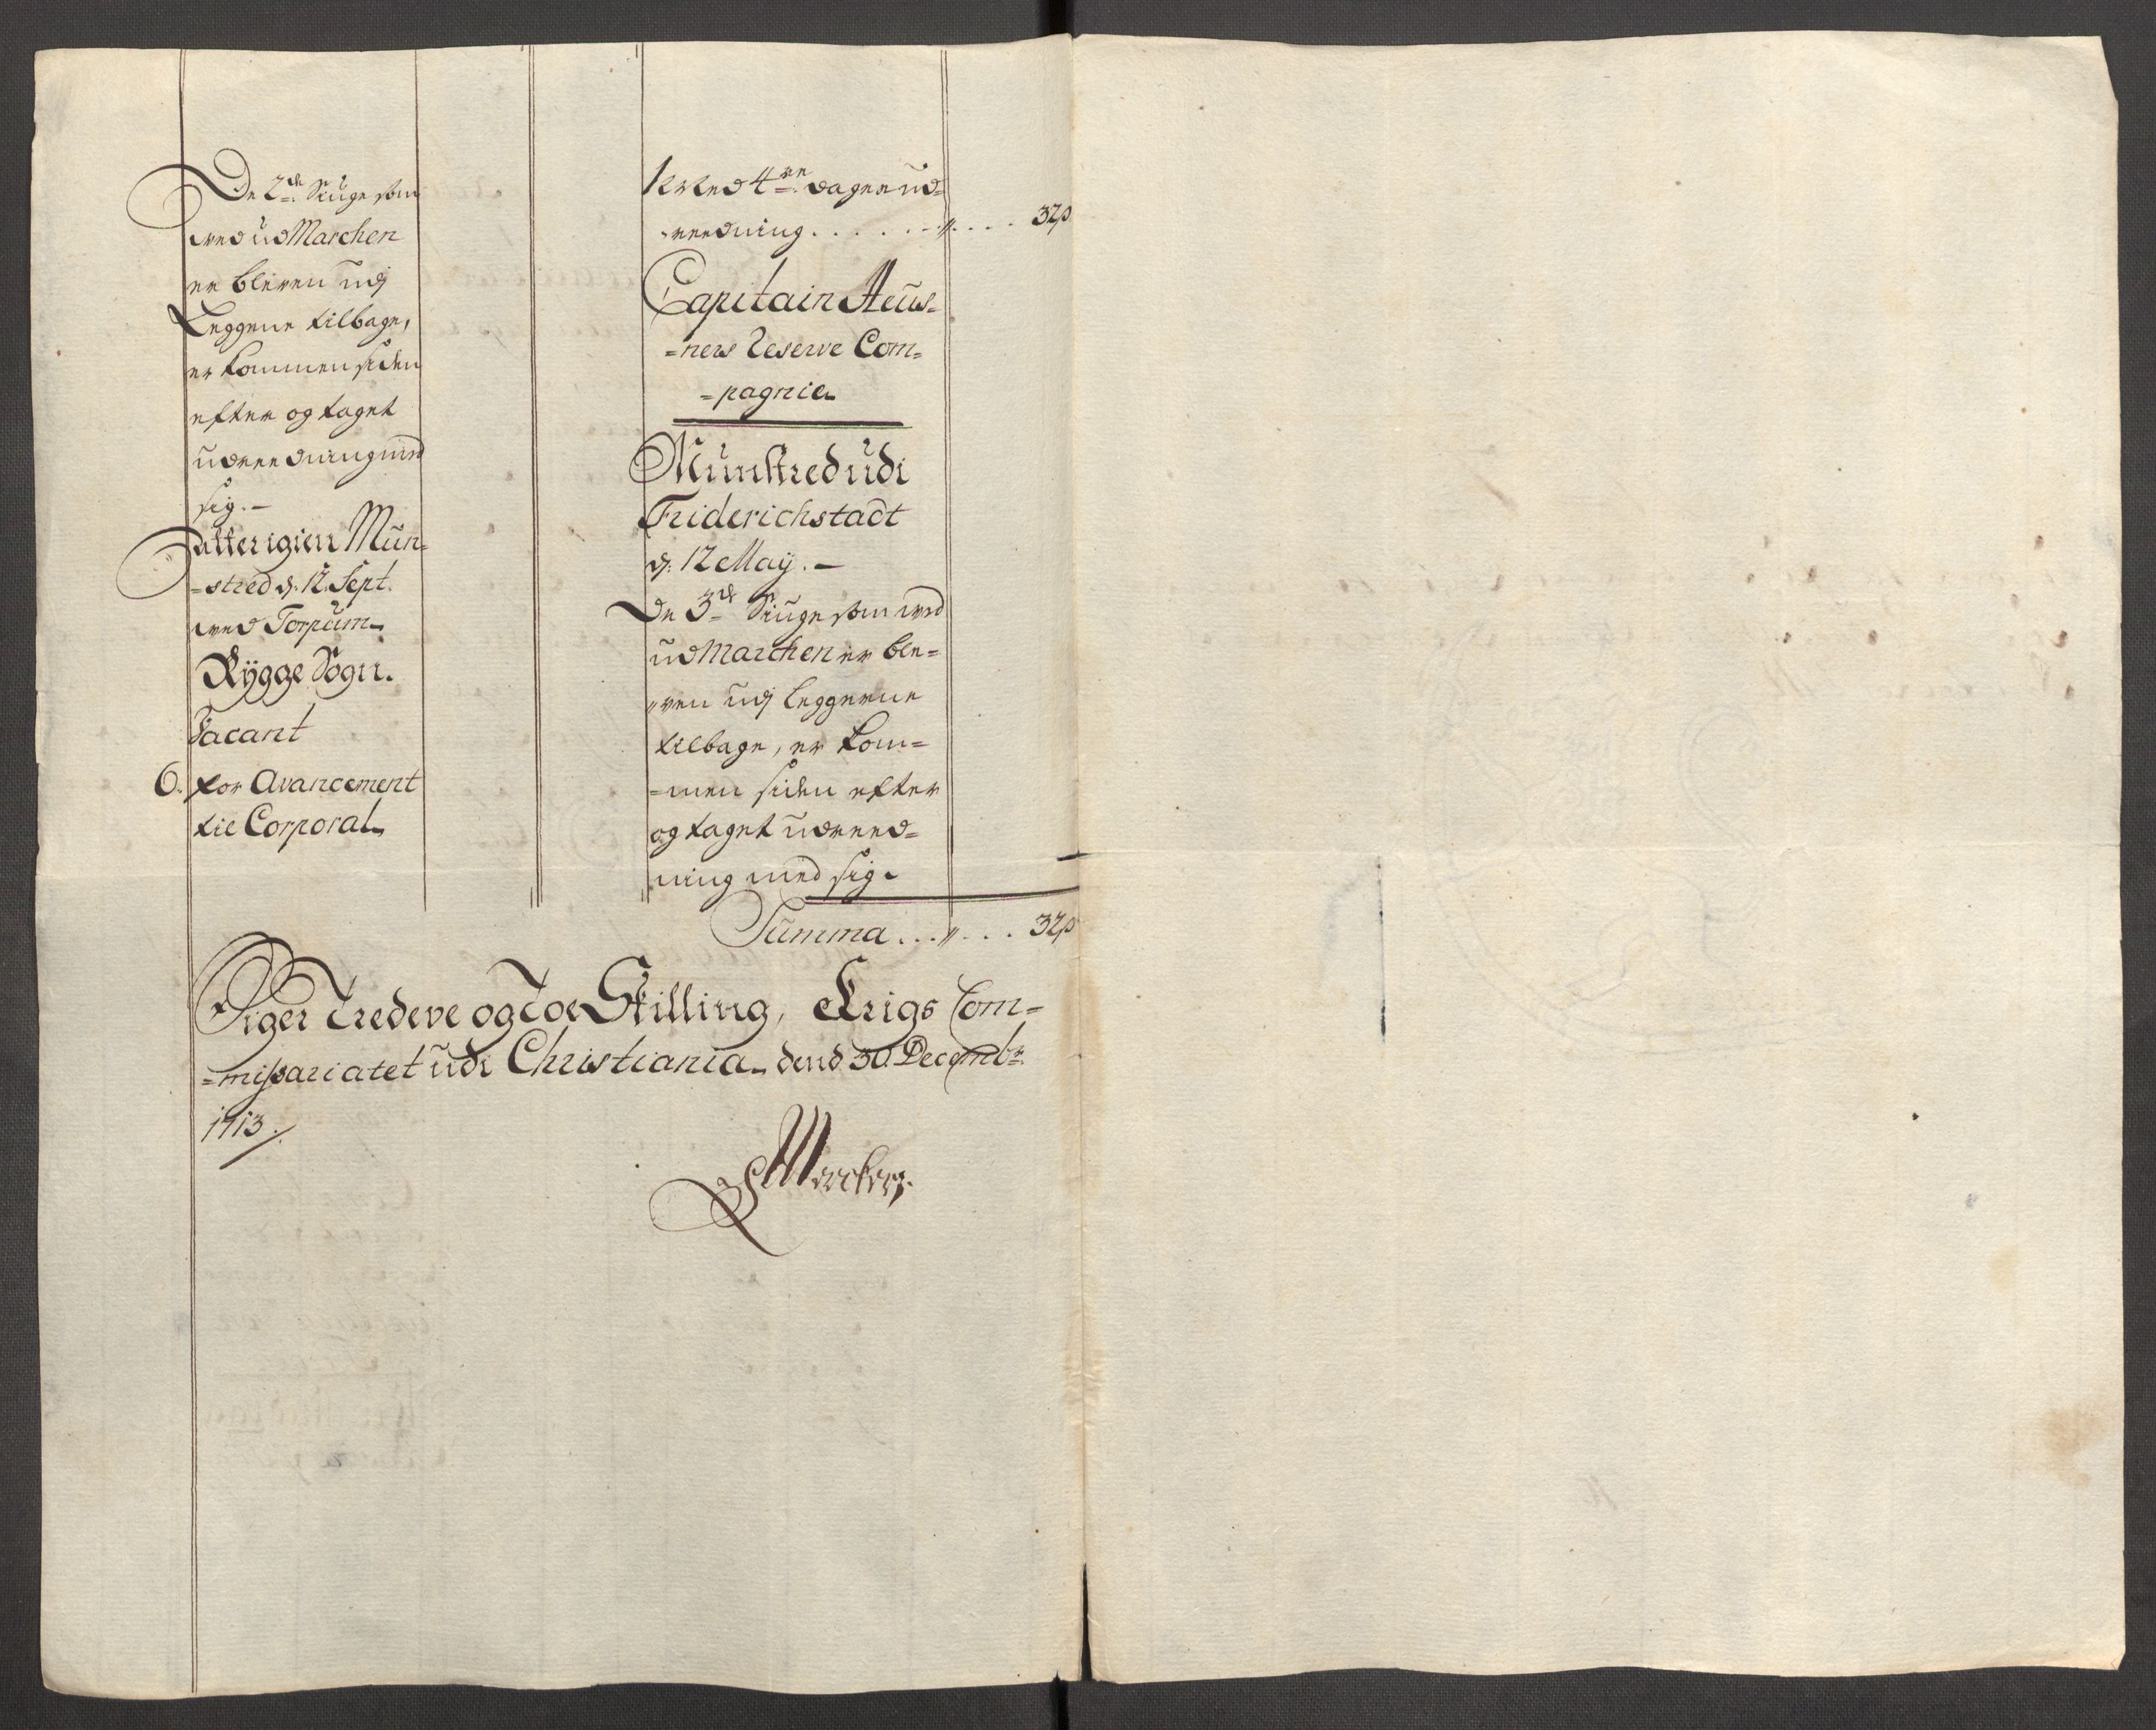 De 2de Siuge som
ved ud Marchen
er bleven udj
Leggene tilbage,
er kommen siden
efter og taget
udreedning med
sig. —
atterigien Mun=
=stred d. 12. Sept.
ved Torpum
Rÿgge Sogn.
Vacant
6. for Avancement
til Corporal
1 Kned 4re dages ud=
=reedning . . . . . . „ . . . . 32 s
Capitain Heus=
=ners Reserve Com=
=pagnie
Munstred udi
Friderichstadt
d. 12 Maÿ. —
De 3de Siuge som ved
ud Marchen er ble=
=ven udj Leggerne
tilbage, er kom=
=men siden efter
og taget udreed=
=ning med sig.
Summa . . . „ . . . 32 s
Siger Tredeve og Toe Skilling, Krigs Com=
=missariatet udi Christiania dend 30 Decembr.
1713.